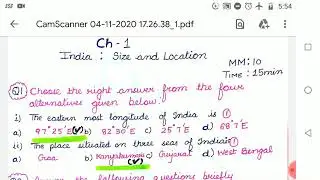 5:54
CamScanner 04-11-2020 17.26.38_1.pdf
Ch-1
India : Size and Location
MM:10
TIME: 15min
Q1 Choose the right answer from the four
alternatives given below.
i) The eastern most longitude of India is 1
a) 97°25'E b) 82°30'E c) 25°7'E d) 68°7'E
ii) The place situated on three seas of India is 1
a) Goa b) Kanyakumari c) Gujarat d) West Bengal
the following questions briefly